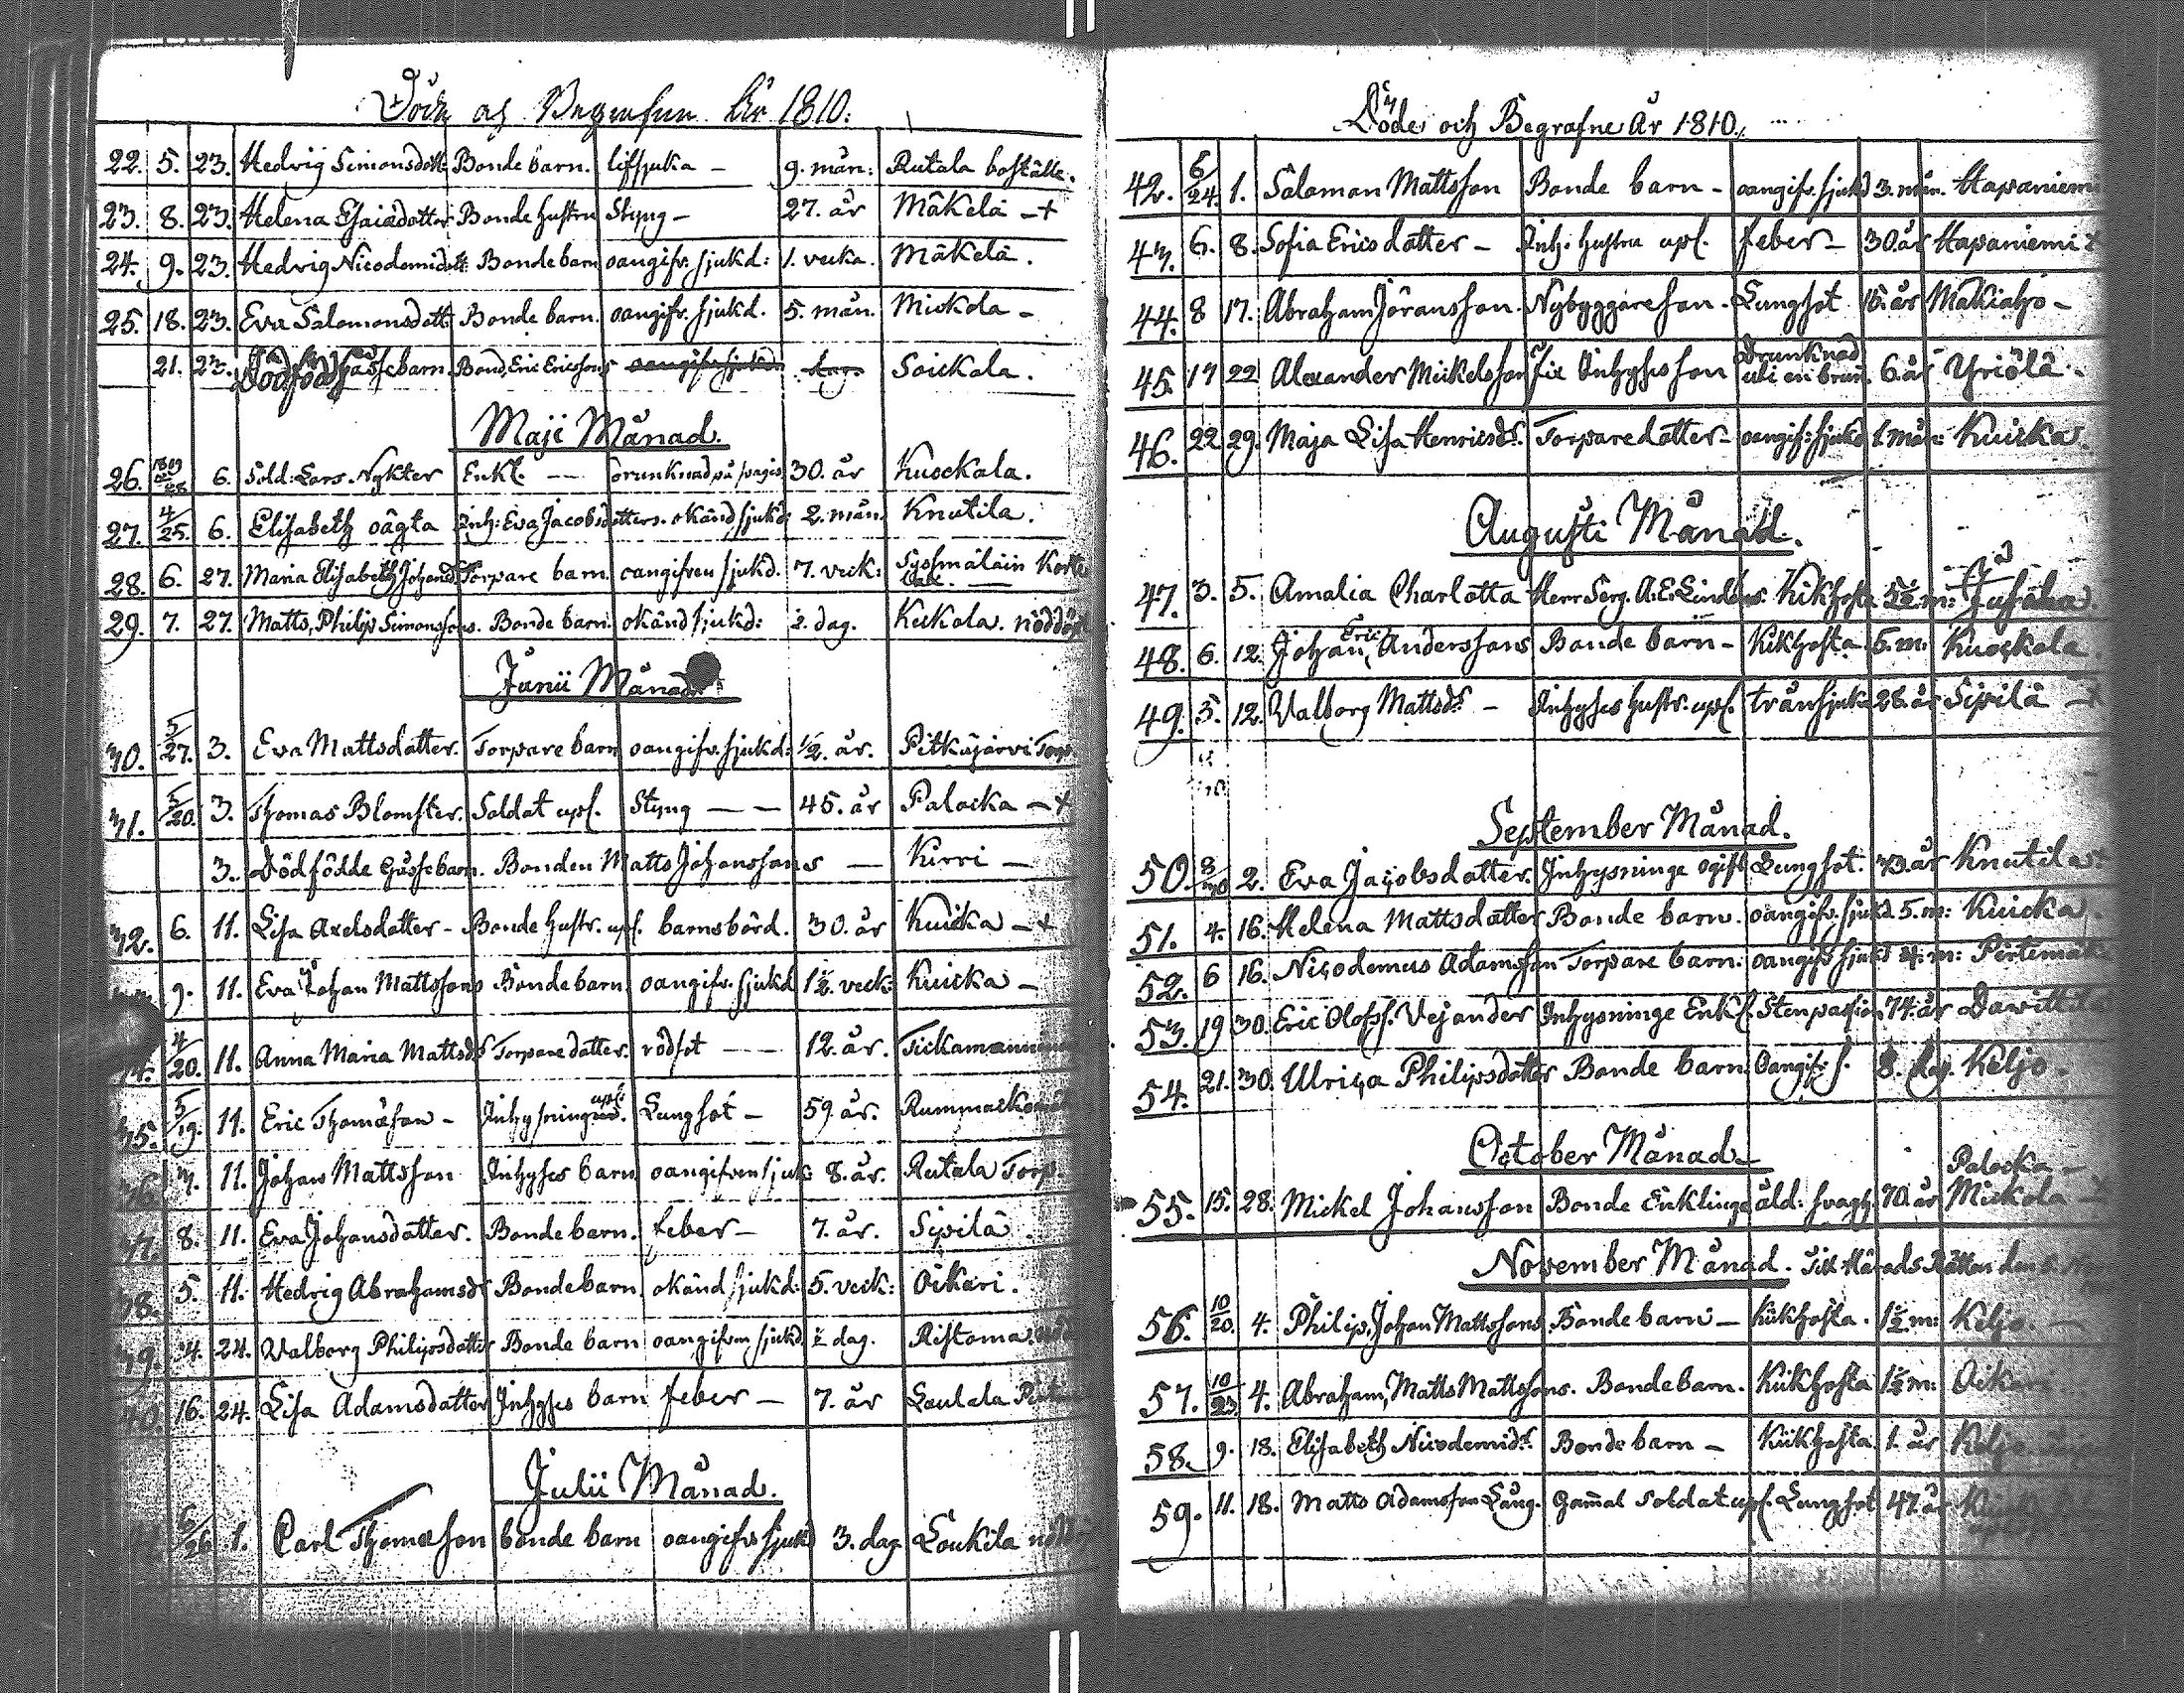 Döde och Begrafne År 1810.
22. 5. 23. Hedvig Simonsdott: Bonde barn. lifsjuka – 9. mån: Rutala boställe.
23. 8. 23. Helena Esaiædotter Bonde hustru Styng – 27. år Mäkelä – +
24. 9. 23. Hedvig Nicodemidott: Bonde barn oangifv. sjukd: 1. vecka. Mäkelä.
25. 18. 23. Eva Salomonsdott: Bonde barn. oangifv. sjukd. 5. mån. Mickola –
21. 23. Dödfödt Gåssebarn Bond. Eric Ericssons oangifv. sjukd. Soickala.
Maji Månad.
26. 1809 28 6. Sold: Lars Nykter Enkl. — Drunknad på 30. år Kuockala.
27. 4/25. 6. Elisabeth oägta Inh: Eva Jacobsdotters. okänd sjukd: 2. mån. Knutila.
28. 6. 27. Maria Elisabeth Johansd: Torpare barn. oangifven sjukd. 7. veck:
29. 7. 27. Matts, Philip Simonssons. Bonde barn. okänd sjukd: ½. dag. Keckola. nöddöpt
Junii Månad
30. 5/27. 3. Eva Mattsdotter. Torpare barn oangifv. sjukd: ½. år. Pitkäjärvi Torp.
31. 5/20. 3. Thomas Blomster. Soldat upf. Styng — — 45. år Palocka – +
3. Dödfödde Gåssebarn. Bonden Matts Johanssons — Kirri –
32. 6. 11. Lisa Axelsdotter – Bonde hustr. upf. barnsbörd. 30. år Kuicka – +
9. 11. Eva, Johan Mattssons Bonde barn oangifv. sjukd 1½. veck: Kuicka –
34. 4/20. 11. Anna Maria Mattsds Torpare dotter. rödsot — 12. år. Tickamannen
35. 5/19. 11. Eric Thomæson – Inhysningeman. upf: Lungsot – 59. år.
36. 3. 11. Johan Mattsson Inhyses barn oangifven sjuk: 8. år. Rutala Torp.
37. 8. 11. Eva Johansdotter. Bonde barn. feber – 7. år. Sipilä.
38. 5. 11. Hedvig Abrahamsdr Bondebarn okänd sjukd: 5. veck: Oikari.
39. 24. Valborg Philipsdotter Bonde barn oangifven sjukd. ½ dag. Ristoma.
40. 16. 24. Lisa Adamsdotter Inhyses barn feber – 7. år
Julii Månad.
41. 6/26 1. Carl Thomæson bonde barn oangifv. sjukd 3. dag Loukila
Döde och Begrafne År 1810.
42. 6/24. 1. Salomon Mattsson Bonde barn – oangifv. sjukd 3. mån. Hapaniemi
43. 6. 8. Sofia Ericsdotter – Inh. hustru upf. feber – 30. år Hapaniemi
44. 8 17. Abraham Jöransson. Nybyggareson. Lungsot 15. år Makiaho –
45. 17 22 Alexander Mickelsson Inhyses son drunknad uti en brun. 6. år Yriölä –
46. 22 29. Maja Lisa Henricsdr. Torparedotter – oangif: sjukd 1. mån: Kuicka.
Augusti Månad.
47. 3. 5. Amalia Charlotta Herr Serg. A. E. Lindens. Kikhosta 5½. m:
48. 6. 12. Johan Eric, Anderssons Bonde barn – Kikhosta 5. m: Kuockala
49. 5. 12. Valborg Mattsdr. – Inhyses hustr. upf. trånsjuka 28. år Sipilä –
September Månad.
50. 8/30 2. Eva Jacobsdotter. Inhysninge ogift Lungsot. 73. år Knutila
51. 4. 16. Helena Mattsdotter Bonde barn. oangifv. sjukd. 5. m: Kuicka
52. 6 16. Nicodemus Adamsson Torpare barn: oangifv sjukd 4. m: Pirtemäki
53. 19 30. Eric Olofss. Vejander Inhysninge Enkl. Stenpassion. 74. år Davittila
54. 21. 30. Ulrica Philipsdotter Bonde barn Oangifv s. 8. dag. Keljo –
October Månad
Palocka –
55. 15. 28. Mickel Johansson Bonde Enklinge åld: svagh: 70. år Mickola –
November Månad. Till Härads Rätten den
56. 10/20. 4. Philip, Johan Mattssons Bonde barn – Kikhosta. 1½ m: Keljo. —
57. 10/23. 4. Abraham, Matts Mattssons. Bonde barn. Kikhosta 1½ m: Oikari
58. 9. 18. Elisabeth Nicodemidr. Bonde barn – Kikhosta 1. år Keljo
59. 11. 18. Matts Adamsson Lång. Gammal Soldat upf. Lungsot 47. år